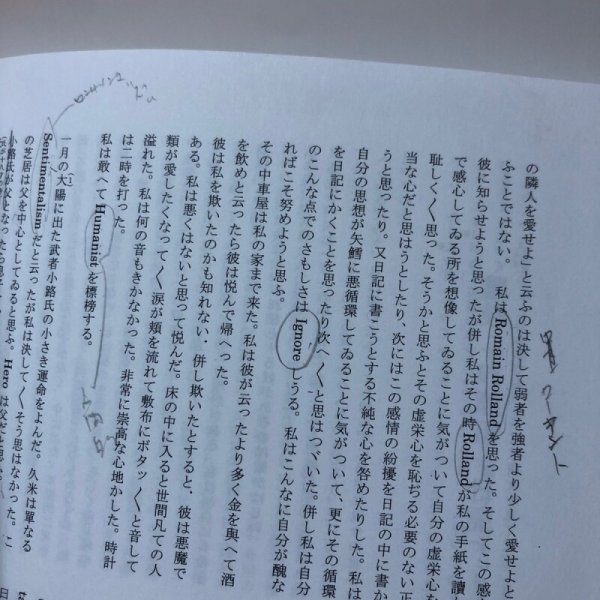 の隣人を愛せよ」と云ふのは決して弱者を強者より少しく愛せよと
ふことではない。 私は Romain Rolland を思った。そしてこの感
彼に知らせようと思ったが併し私はその時 Rolland が私の手紙を讀
で感心してゐる所を想像してゐることに気がついて自分の虚栄心を
恥しく〳〵思った。そうかと思ふとその虚栄心を恥ぢる必要のない正
当な心だと思はうとしたり、次にはこの感情の紛擾を日記の中に書か
うと思ったり。又日記に書こうとする不純な心を咎めたりした。私は
自分の思想が矢鱈に悪循環してゐることに気がついて、更にその循環
を日記にかくことを思ったり次へ〳〵と思はつゞいた。併し私は自分
のこんな点でのさもしさは Ignore しうる。私はこんなに自分が醜な
ればこそ努めようと思ふ。
その中車屋は私の家まで来た。私は彼が云ったより多く金を與へて酒
を飲めと云ったら彼は悦んで帰へった。
彼は私を欺いたのかも知れない・併し欺いたとすると、彼は悪魔で
ある。私は悪くはないと思って悦んだ。床の中に入ると世間凡ての人
類が愛したくなって〳〵涙が頬を流れて敷布にボタッ〳〵と音して
溢れた。私は何の音もきかなかった。非常に崇高な心地かした。時計
は二時を打った。
私は敢へて Humanist を標榜する。
一月の太陽に出た武者小路氏の小さき運命をよんだ。久米は單なる
Sentimentalism だと云ったが私は決して〳〵そう思はなかった。こ
の芝居は父を中心としてゐると思ふ。 Hero は父だと思ふ。